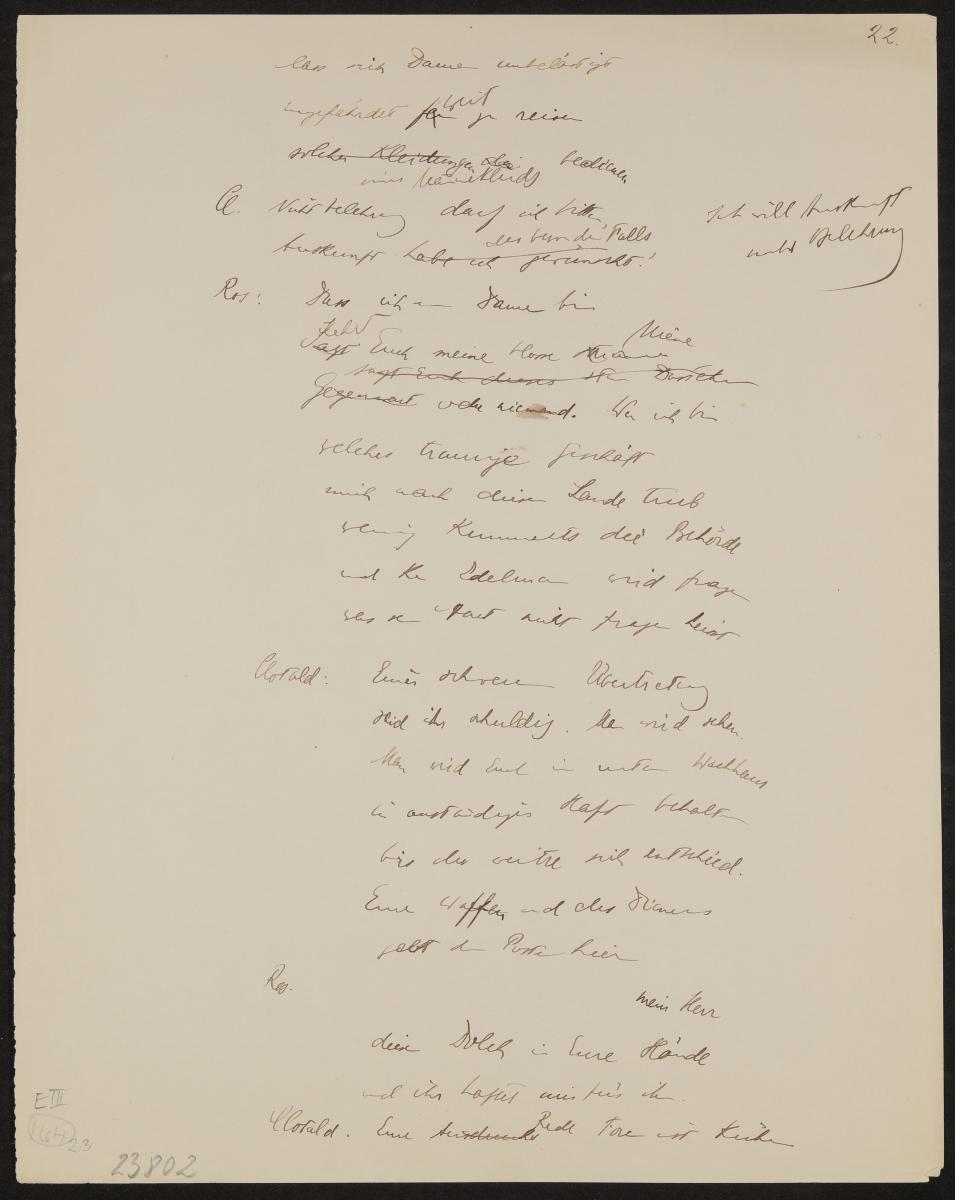 22.
lass sich Damen unbelästigt
ungefährdet fern weit zu reisen
solcher Kleidungen bedienen
eines Männerkleids
Cl. Nicht Belehrung darf ich bitten
Ich will Auskunft
nicht Belehrung
des besondern Falls
Auskunft habe ich gewünscht!
Ros: Dass ich eine Dame bin
lehrt Miene
sagt Euch meine blosse
sagt Euch dieses
Gegenwart oder niemand. Wer ich bin
welches traurige Geschäft
mich nach diesem Lande trieb
wenig kümmerts die Behörde
und kein Edelmann wird fragen
was nicht fragen heisst
Clotald: Einer schweren Übertretung
seid ihr schuldig. Man wird sehen.
Man wird Euch im untern Wachhaus
in anständiger Haft behalten
bis das weitre sich entschied.
Eure Waffen und des Dieners
gebt dem Posten hier
Ros.
mein Herr
diesen Dolch in Eure Hände
und ihr haftet mir für ihn.
Clotald. Eure Rede Ton ist kühn
E III
23
23802